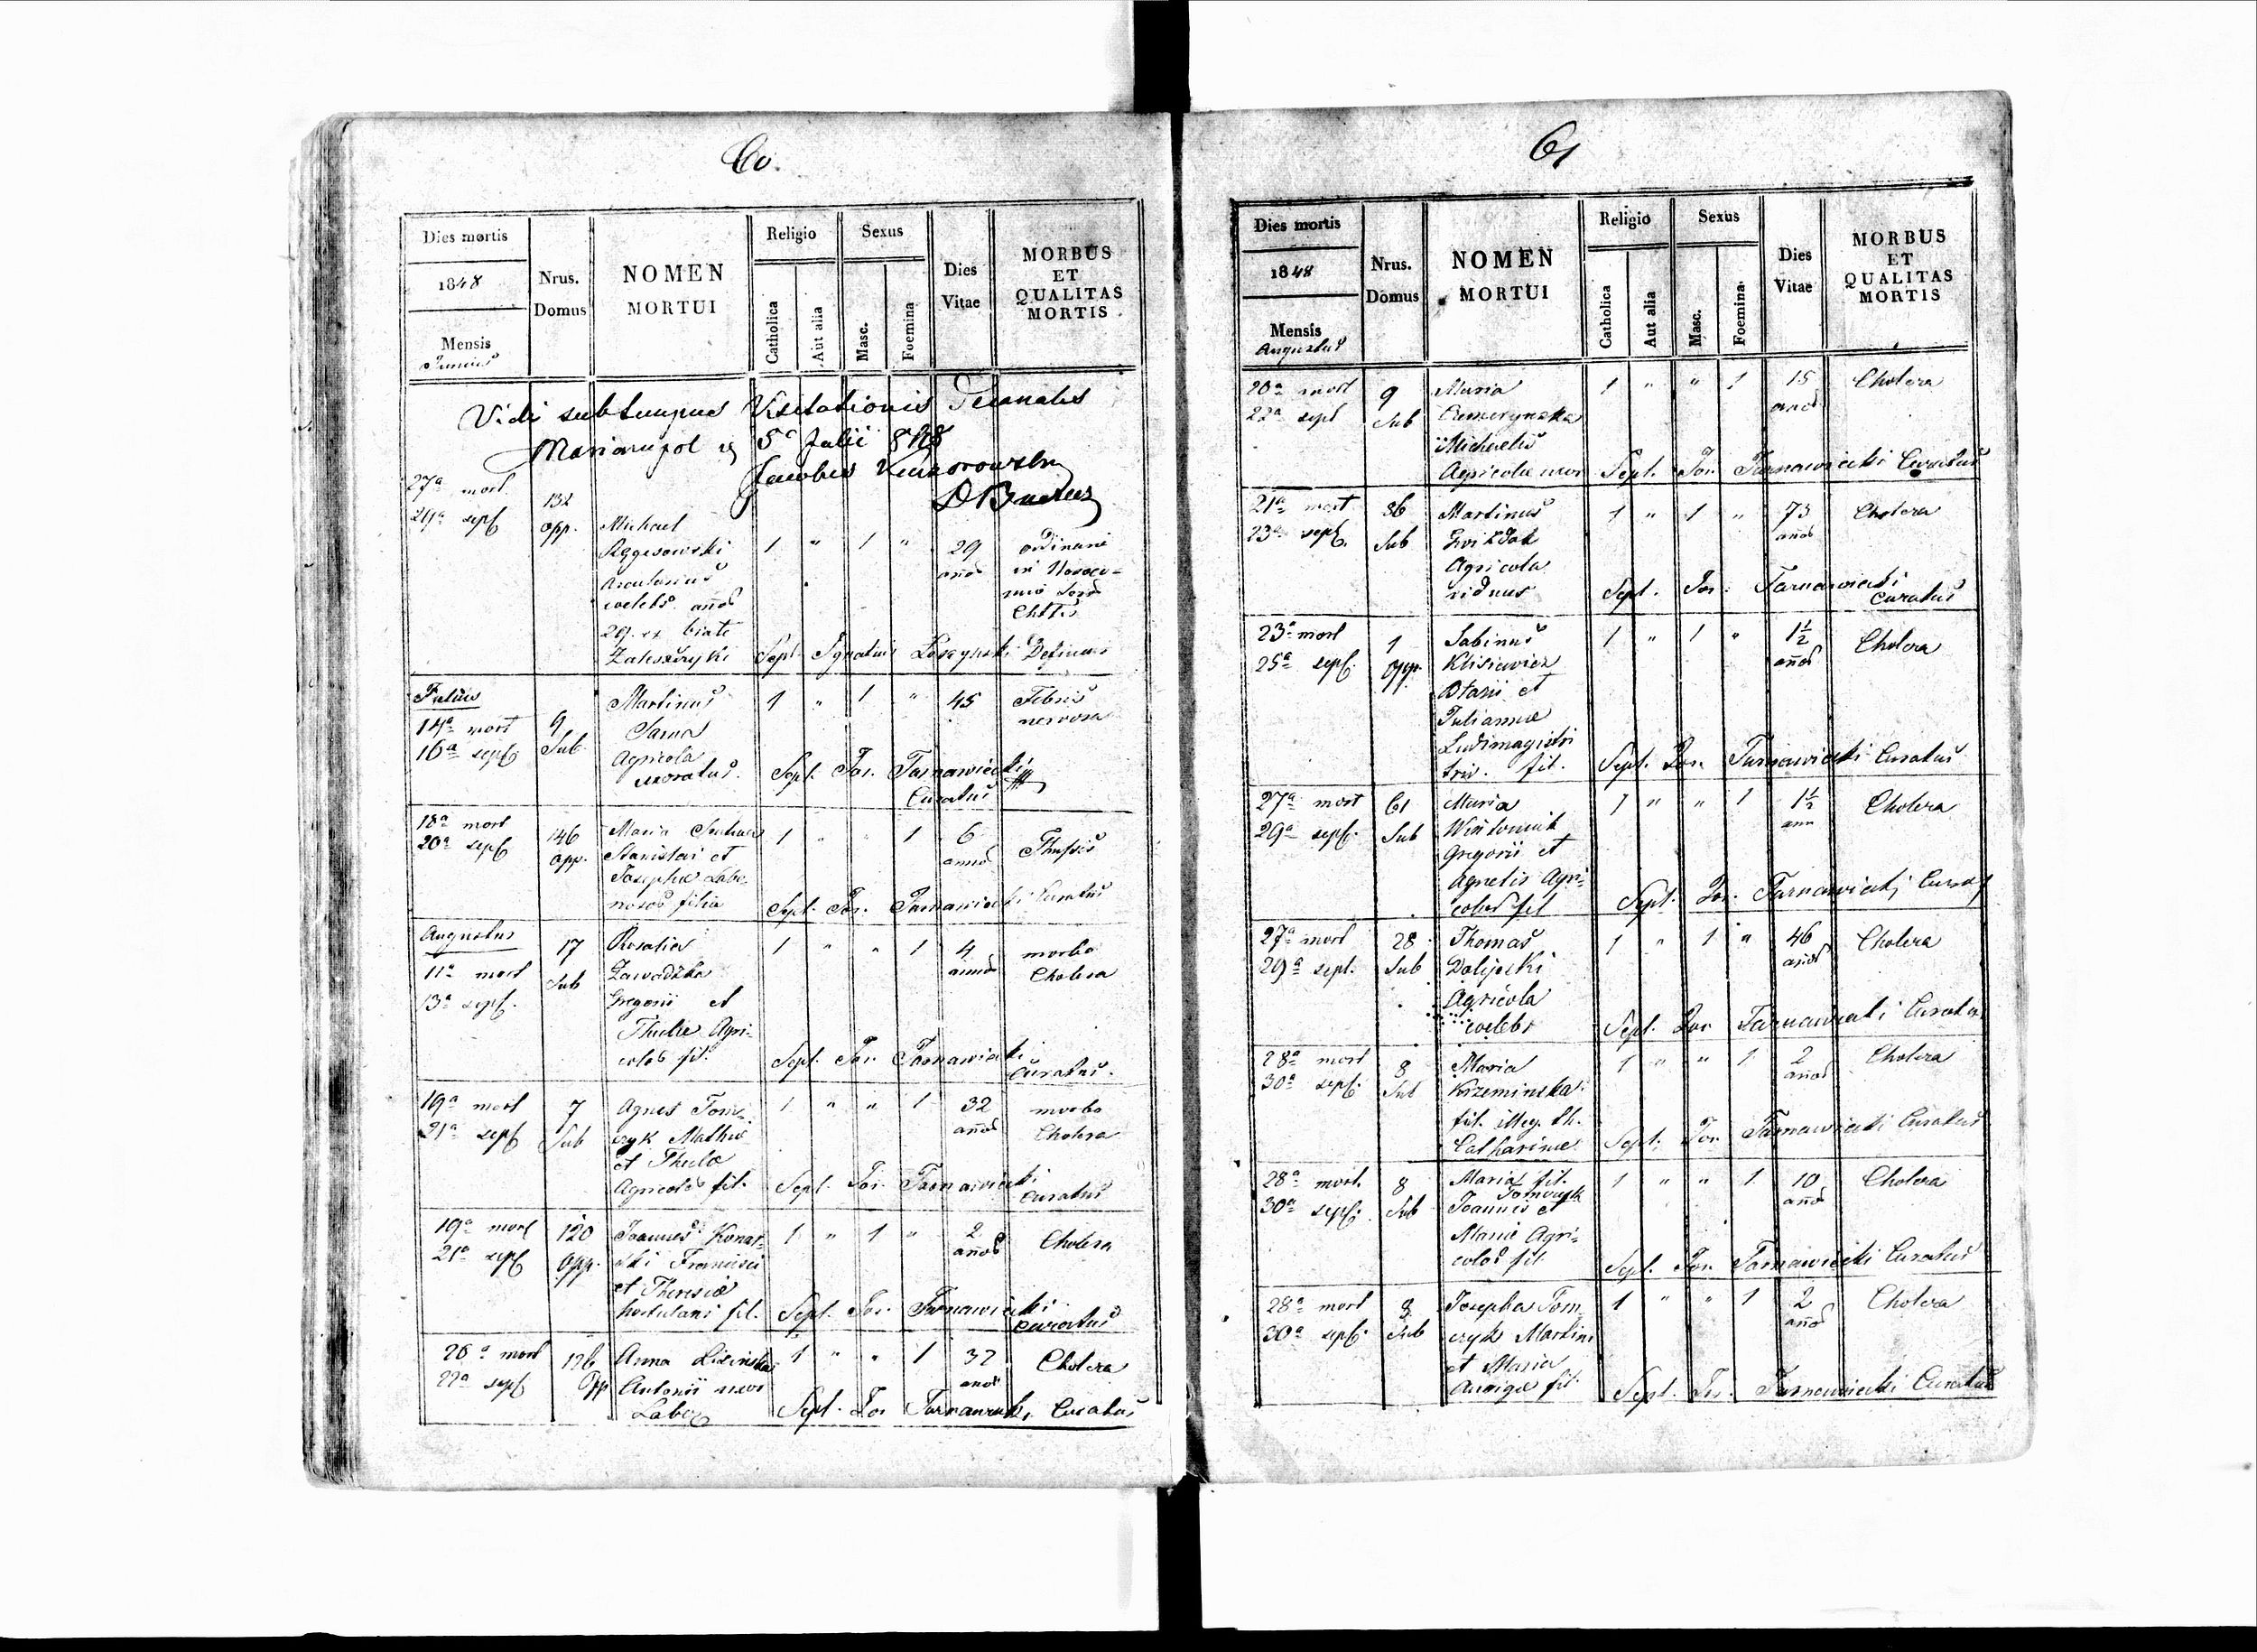 60.
Dies mortis
1848
Mensis
Junius
Nrus.
Domus
NOMEN
MORTUI
Religio
Catholica
Aut alia
Sexus
Masc.
Foemina
Dies
Vitae
MORBUS
ET
QUALITAS
MORTIS.
Vidi sub tempus Visitationis Decanalis
Mariampol 5a Julii 848
Jacobus
27a mort.
29a sepf
132
opp.
Michael
celebs añor
29. ex
1 " 1 "
29
añor
ordinaria
in Nosoco-
mio
Sepf. Ignatius
Julius
14a mort
16a sepf.
9
Sub
Martinus
Sarna
Agricola
uxoratus.
1 " 1 "
45
Febris
nervosa
Sepf. Jos. Tarnawiecki
Curatus
18a mort
20a sepf
146
opp.
Maria
Stanislai et
Josephæ Labo-
filia
1 " " 1
6
annor
Sepf. Jos. Tarnawiecki Curatus
Augustus
11a mort
13a sepf.
17
Sub
Rosalia
Zawadzka
Gregorii et
Theclæ Agri-
colar fil.
1 " " 1
4
annor
morbo
Cholera
Sepf. Jos. Tarnawiecki
Curatus.
19a mort
21a sepf
7
Sub
Agnes Tom-
czyk Mathiæ
et Theclæ
Agricolar fil.
1 " " 1
32
añor
morbo
Cholera
Sepf. Jos. Tarnawiecki
Curatus
19a mort
21a sepf
120
opp.
Joannes Konar-
ski Francisci
et Theresiæ
hortulani fil.
1 " 1 "
2
añor
Cholera
Sepf. Jos. Tarnawiecki
Curatus
20a mort
22a sepf
126
Opp
Anna
Antonii uxor
1 " " 1
32
anor
Cholera
Sepf. Jos Tarnawiecki Curatus
61
Dies mortis
1848
Mensis
Augustus
Nrus.
Domus
NOMEN
MORTUI
Religio
Catholica
Aut alia
Sexus
Masc.
Foemina.
Dies
Vitae
MORBUS
ET
QUALITAS
MORTIS
20a mort
22a sepf
9
Sub
Maria
Michaelis
Agricolæ uxor
1 " " 1
15
anor
Cholera
Sepf. Jos. Tarnawiecki Curatus
21a mort
23a sepf.
36
Sub
Martinus
Agricola
viduus
1 " 1 "
73
añor
Cholera
Sepf. Jos. Tarnawiecki
Curatus
23a mort
25a sepf.
1
opp.
Sabinus
Klisiewicz
et
Juliannæ
Ludimagistri
triv. fil.
1 " 1 "
1½
añor
Cholera
Sepf. Jos. Tarnawiecki Curatus
27a mort
29a sepf.
61
Sub
Maria
Gregorii et
Agnetis Agri-
colar fil
1 " " 1
1½
ann
Cholera
Sepf. Jos. Tarnawiecki Curat
27a mort
29a sepf.
28
Sub
Thomas
Agricola
celebs
1 " 1 "
46
añor
Cholera
Sepf. Jos. Tarnawiecki Curatus
28a mort
30a sepf.
8
Sub
Maria
Krzeminska
fil. illeg. th.
Catharinæ
1 " " 1
2
añor
Cholera
Sepf. Jos. Tarnawiecki Curatus
28a mort.
30a sepf.
8
Sub
Maria fil.
Tomczyk
Joannis et
Mariæ Agri-
colar fil.
1 " " 1
10
añor
Cholera
Sepf. Jos. Tarnawiecki Curatus
28a mort
30a sepf.
8
Sub
Josepha Tom-
czyk Martini
et Mariæ
Aurigæ fil.
1 " " 1
2
añor
Cholera
Sepf. Jos. Tarnawiecki Curatus